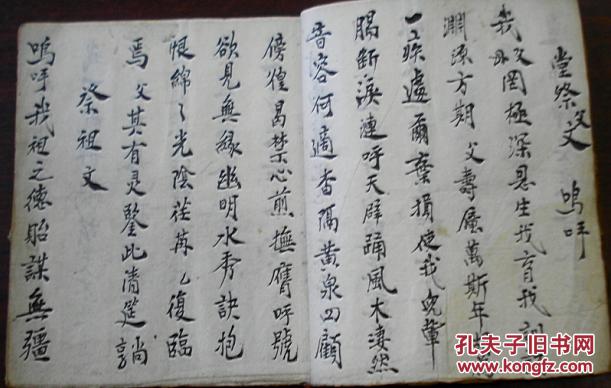 堂祭父文 嗚呼
我父罔極深恩生我育我訓
淵源方期 父壽屢萬斯年
一疾遽爾棄損使我兒輩
腸斷淚漣呼天躃踊風木淒然
音容何適杳隔黃泉四顧
傍徨曷禁心煎撫膺呼號
欲見無緣幽明永秀訣抱
恨綿々光陰荏苒七復臨
焉 父其有灵鑒此清筵尚
祭祖文
嗚呼我祖之德貽謀無疆
孔夫子旧书网
KONGFZ.COM